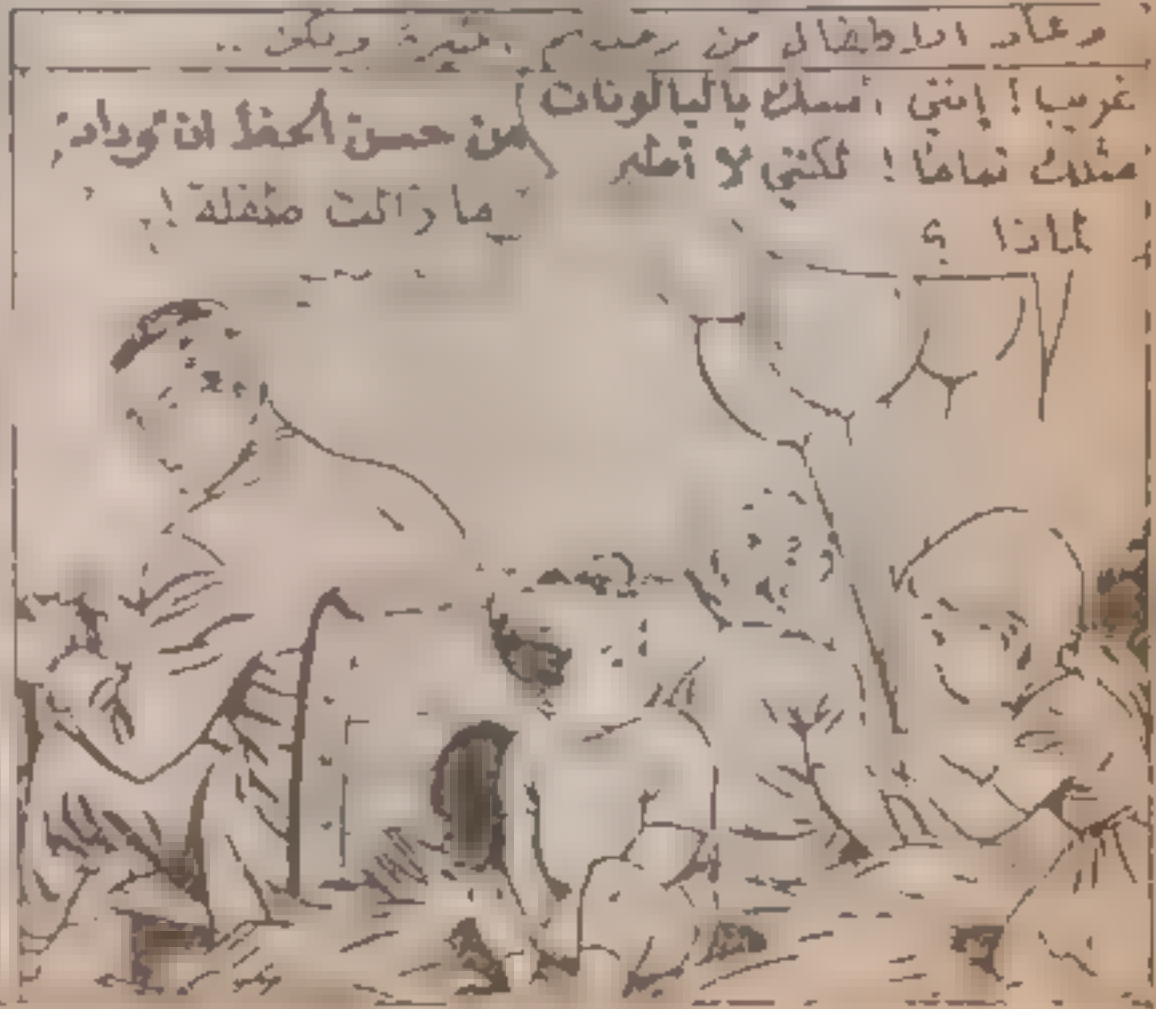 وعاد الاطفال من رحلتهم المثيرة ولكن ..
غريب ! إننى أمسك بالبالونات
مثلك تماما ! لكننى لا أطير
لماذا ؟
من حسن الحظ ان وداد
ما زالت طفلة !